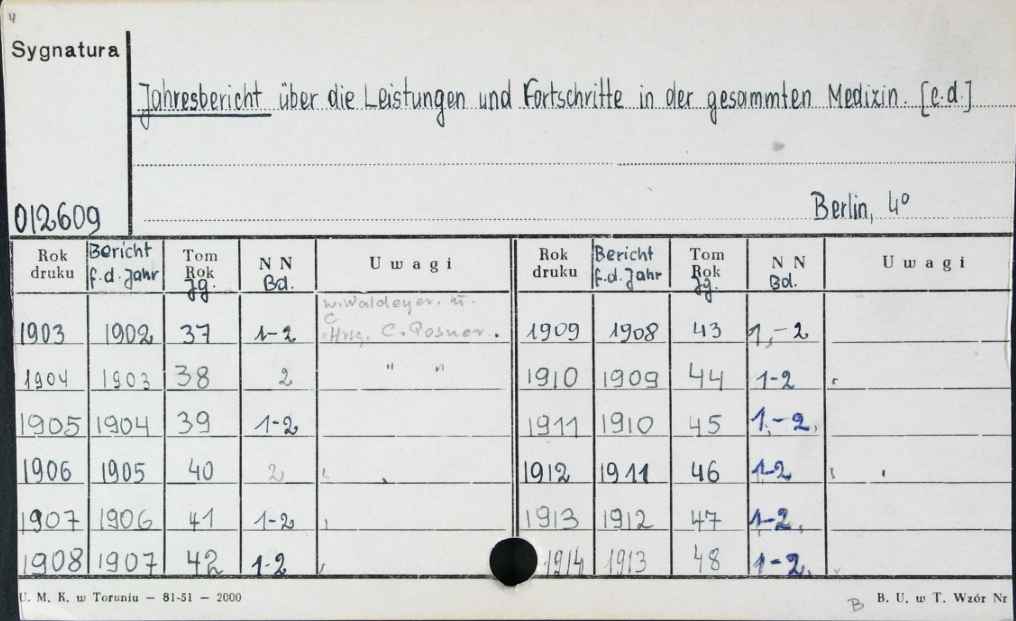 4
Sygnatura
Jahresbericht über die Leistungen und Fortschritte in der gesammten Medixin. [c.d.]
012609
Berlin, 4º
Rok druku Bericht f.d. Jahr Tom Rok Jg. NN Bd. Uwagi Rok druku Bericht f.d. Jahr Tom Rok Jg. NN Bd. Uwagi
w. Waldeyer. u.
C
1903 1902 37 1-2 Hrsg. C. Posner. 1909 1908 43 1,-2
1904 1903 38 2 " " 1910 1909 44 1-2
1905 1904 39 1-2 1911 1910 45 1,-2,
1906 1905 40 2 1912 1911 46 1-2
1907 1906 41 1-2 1913 1912 47 1-2,
1908 1907 42 1-2 1914 1913 48 1-2,
U. M. K. w Toruniu — 81-51 — 2000
B B. U. w T. Wzór Nr